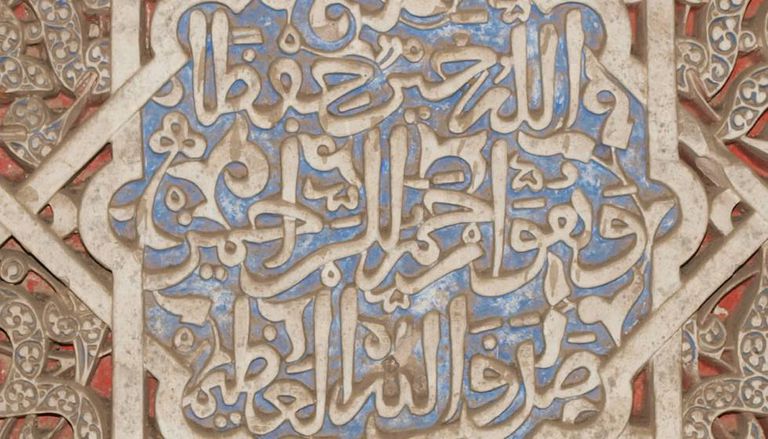 فالله خير حفظا
وهو ارحم الراحمين
صدق الله العظيم